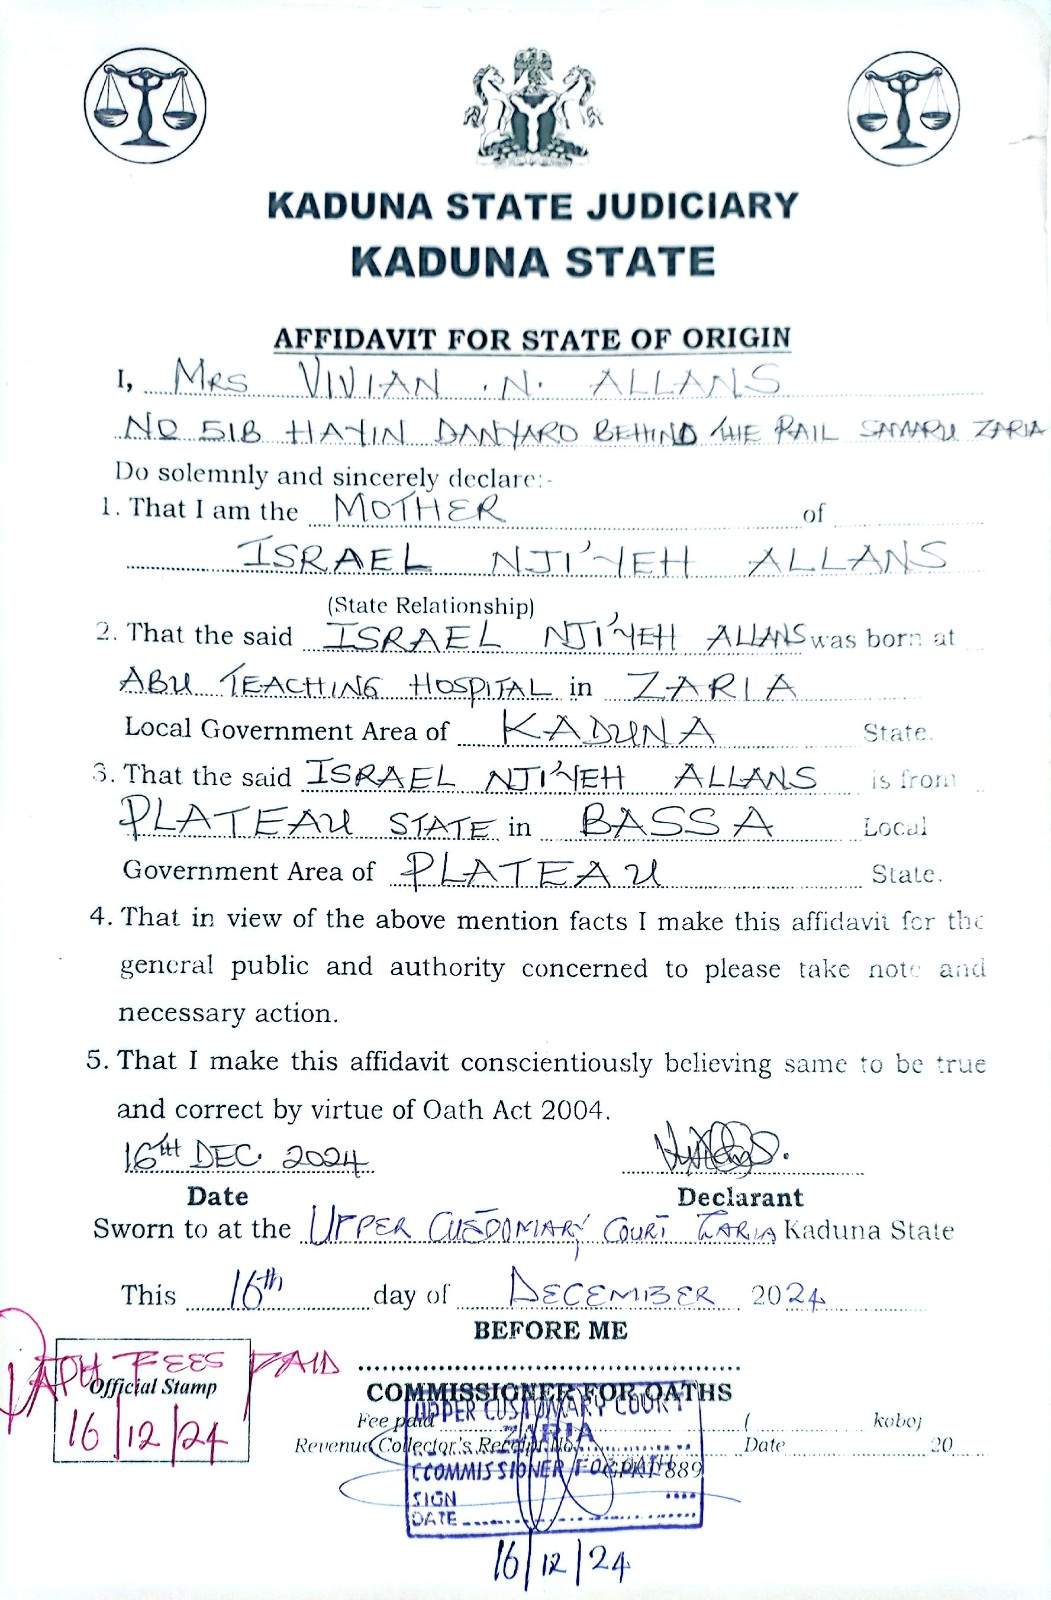 KADUNA STATE JUDICIARY
KADUNA STATE
AFFIDAVIT FOR STATE OF ORIGIN
I, Mrs VIVIAN .N. ALLANS
NO 51B HAYIN DANYARO BEHIND THE RAIL SAMARU ZARIA
Do solemnly and sincerely declare:-
1. That I am the MOTHER of
ISRAEL NJI'YEH ALLANS
(State Relationship)
2. That the said ISRAEL NJI'YEH ALLANS was born at
ABU TEACHING HOSPITAL in ZARIA
Local Government Area of KADUNA State.
3. That the said ISRAEL NJI'YEH ALLANS is from
PLATEAU STATE in BASSA Local
Government Area of PLATEAU State.
4. That in view of the above mention facts I make this affidavit for the
general public and authority concerned to please take note and
necessary action.
5. That I make this affidavit conscientiously believing same to be true
and correct by virtue of Oath Act 2004.
16TH DEC. 2024
Date Declarant
Sworn to at the UPPER CUSTOMARY COURT ZARIA Kaduna State
This 16th day of DECEMBER 2024
BEFORE ME
FEES PAID
Official Stamp
16/12/24
COMMISSIONER FOR OATHS
Fee paid ( kobo)
UPPER CUSTOMARY COURT
ZARIA
Revenue Collector's Receipt No. Date 20
COMMISSIONER FOR OATH
889
SIGN
DATE
16/12/24